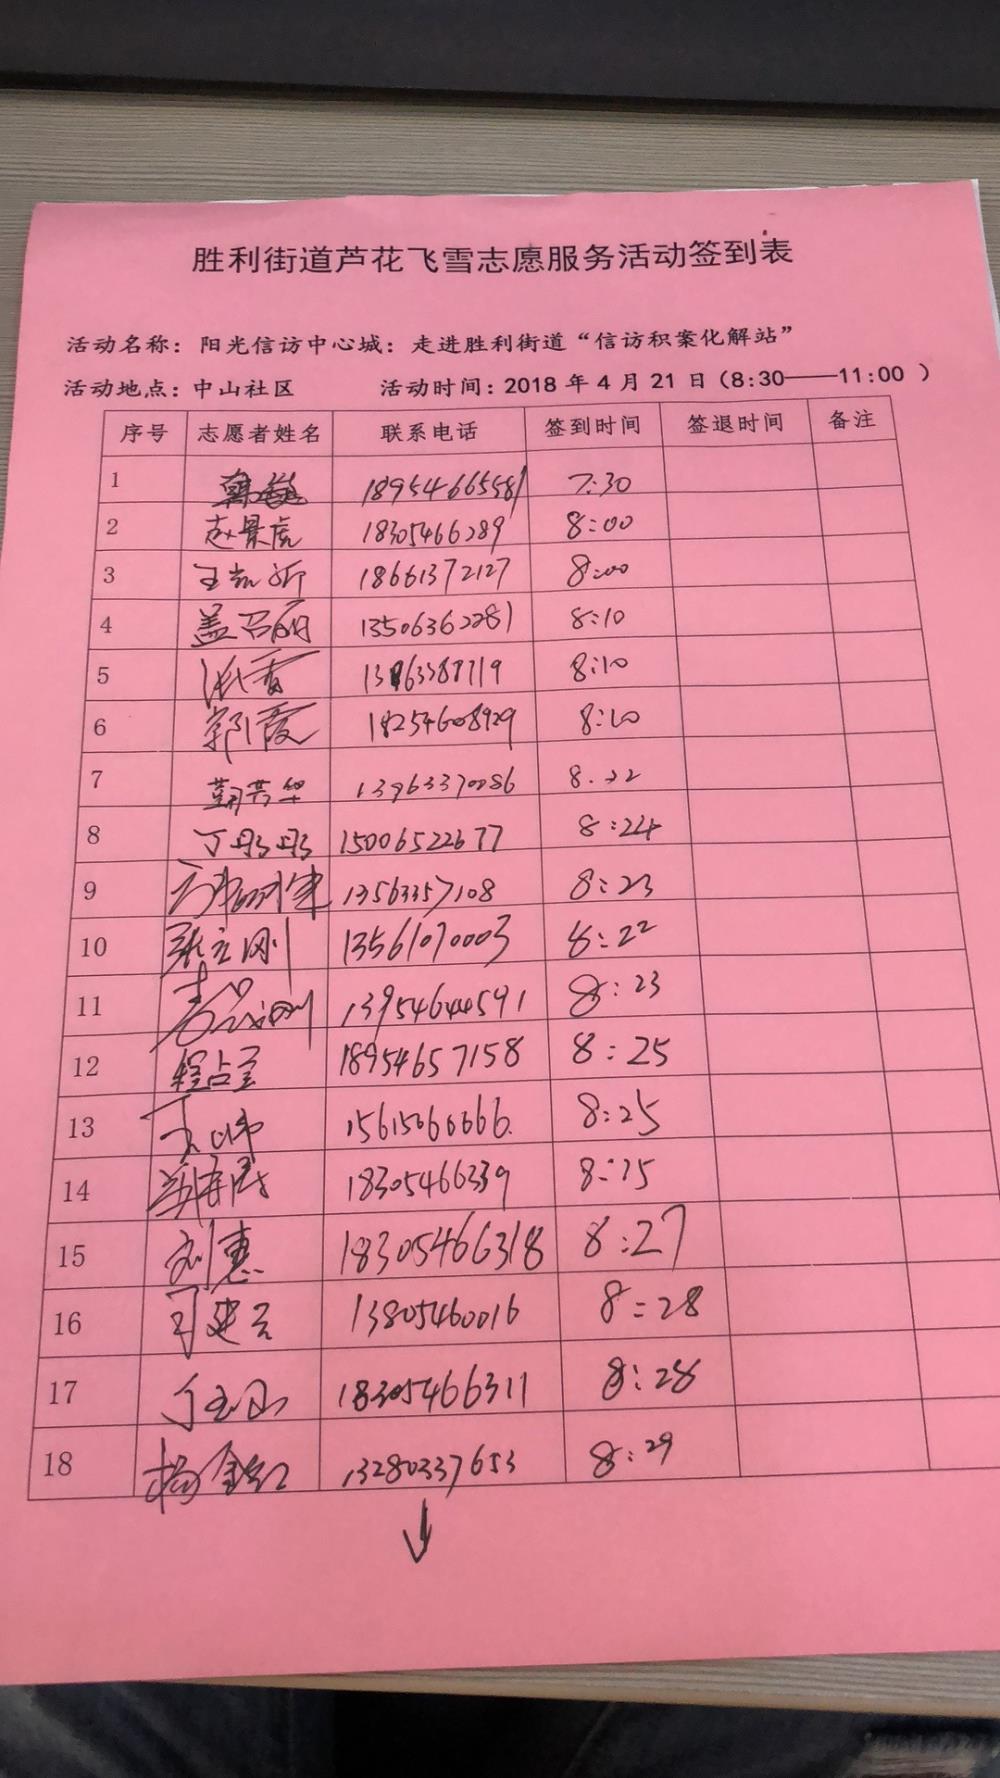 胜利街道芦花飞雪志愿服务活动签到表
活动名称：阳光信访中心城：走进胜利街道“信访积案化解站”
活动地点：中山社区 活动时间：2018 年 4 月 21 日（8:30——11:00 ）
序号 志愿者姓名 联系电话 签到时间 签退时间 备注
1 18954665581 7:30
2 赵景虎 18305466289 8:00
3 18661372127 8:00
4 盖召丽 13506362281 8:10
5 8:10
6 郭霞 18254608929 8:20
7 13963370086 8.22
8 丁丹丹 15006522677 8:24
9 13563357108 8:23
10 张立刚 13561070003 8:22
11 13954644591 8:23
12 程占宝 18954657158 8:25
13 15615066666. 8:25
14 18305466339 8:25
15 刘惠 18305466318 8:27
16 13805460016 8:28
17 18305466311 8:28
18 杨金红 13280337653 8:29